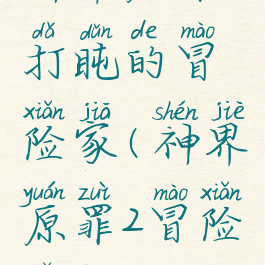 dǎ dǔn de mào
打盹的冒
xiǎn jiā shén jiè
险家(神界
yuán zuì mào xiǎn
原罪2冒险